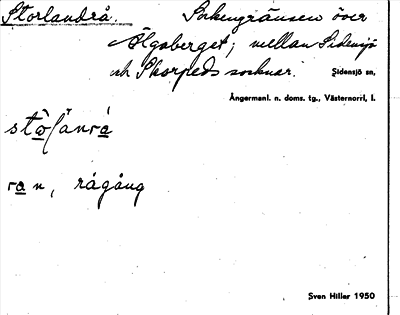 Storlandrå. Sockengränsen över
Älgaberget, mellan Sidensjö
och Skorpeds socknar.
Sidensjö sn,
Ångermanl. n. doms. tg., Västernorrl. l.
ra n, rågång
Sven Hiller 1950